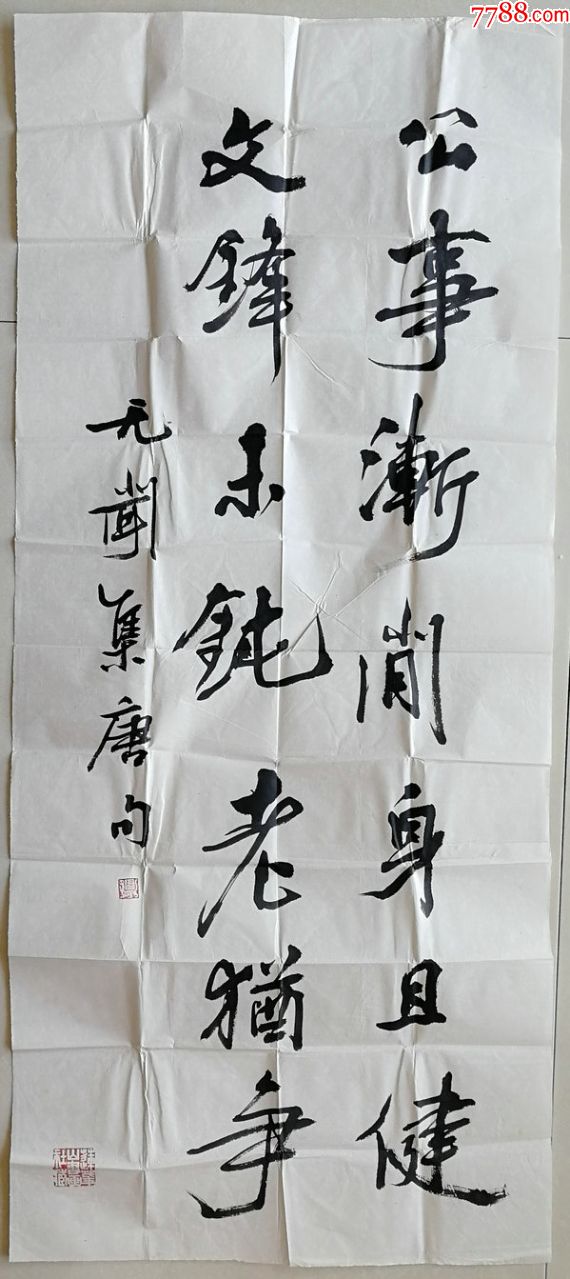 7788.com
公事漸閒身且健
文鋒未鈍老猶争
无聞集唐句